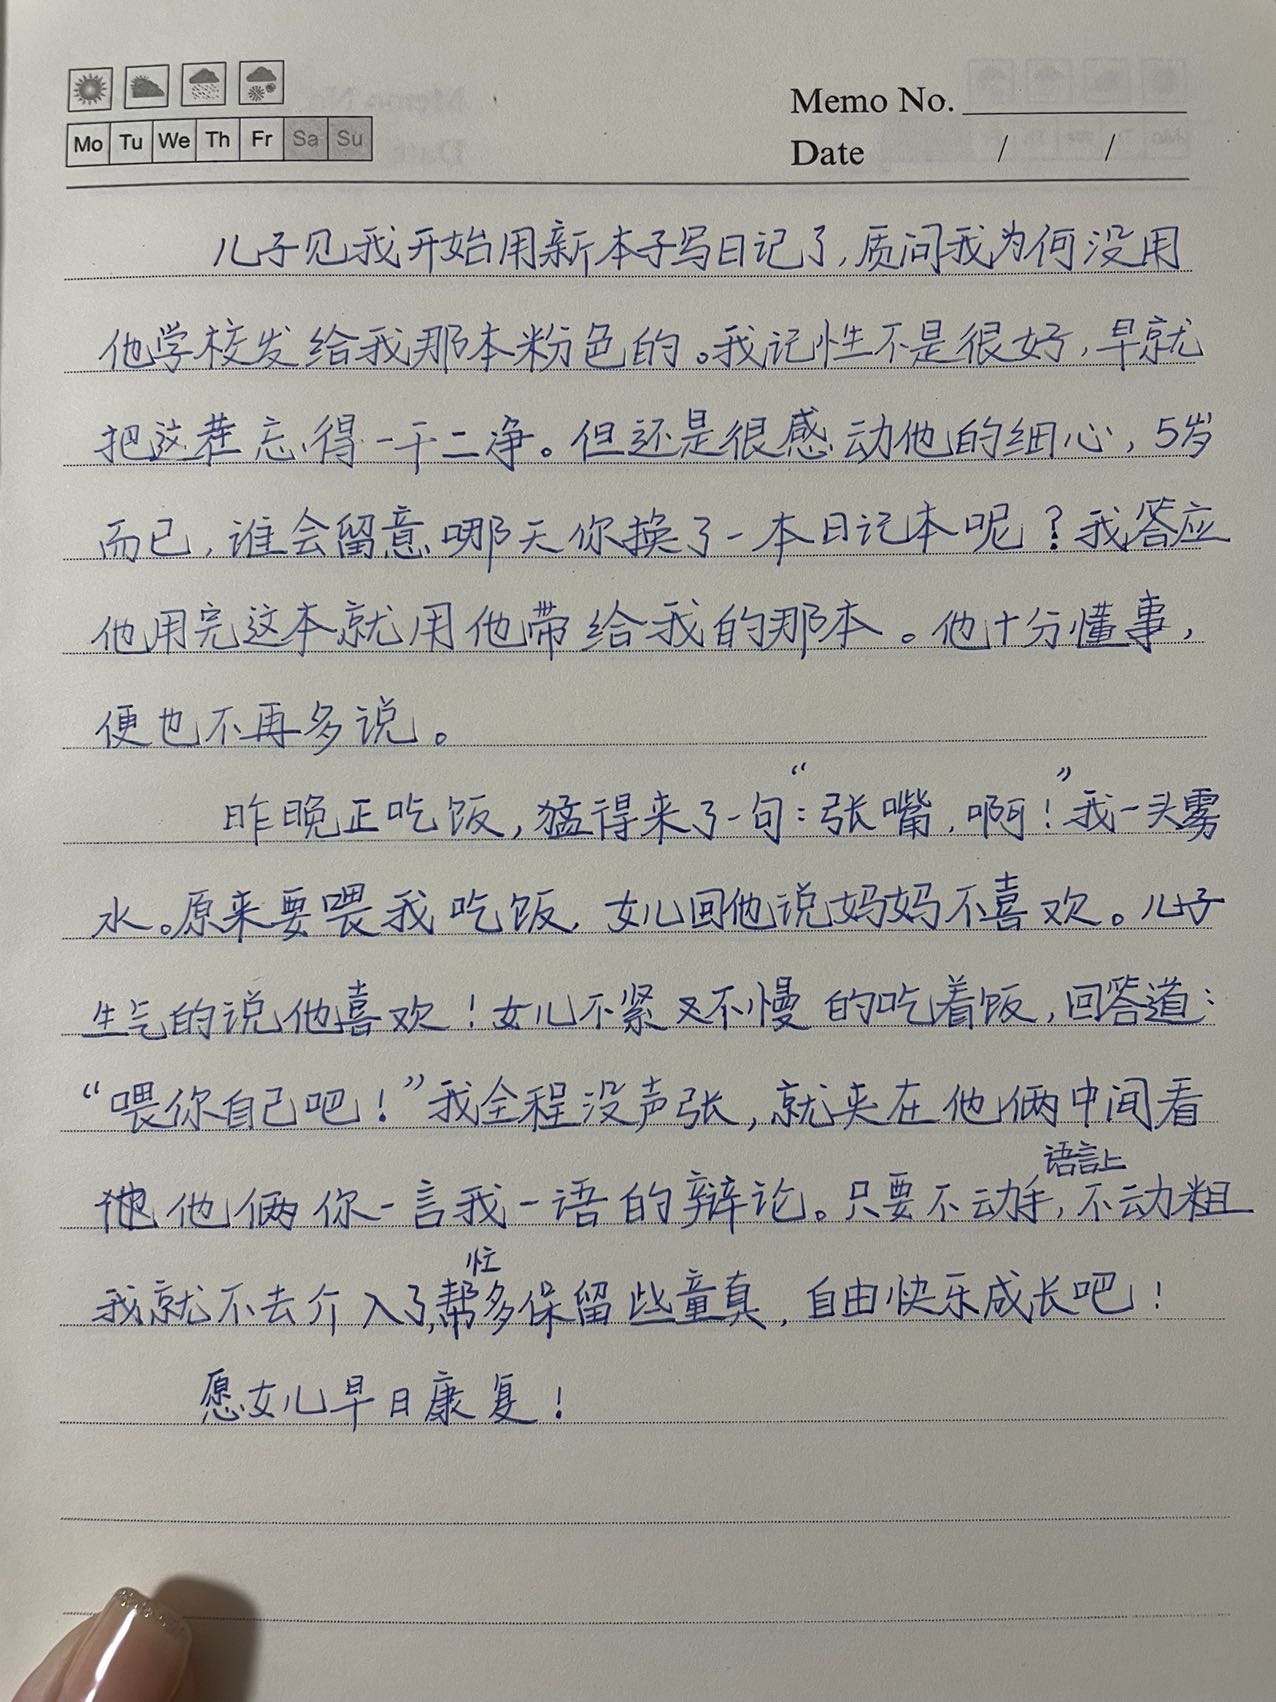 Memo No.
Mo Tu We Th Fr Sa Su
Date / /
儿子见我开始用新本子写日记了,质问我为何没用
他学校发给我那本粉色的。我记性不是很好,早就
把这茬忘得一干二净。但还是很感动他的细心,5岁
而已,谁会留意哪天你换了一本日记本呢?我答应
他用完这本就用他带给我的那本。他十分懂事,
便也不再多说。
昨晚正吃饭,猛得来了一句:“张嘴,啊!”我一头雾
水。原来要喂我吃饭,女儿回他说妈妈不喜欢。儿子
生气的说他喜欢!女儿不紧又不慢的吃着饭,回答道:
“喂你自己吧!”我全程没声张,就夹在他俩中间看
他俩你一言我一语的辩论。只要不动手,语言上不动粗
我就不去介入了,帮忙多保留些童真,自由快乐成长吧!
愿女儿早日康复!